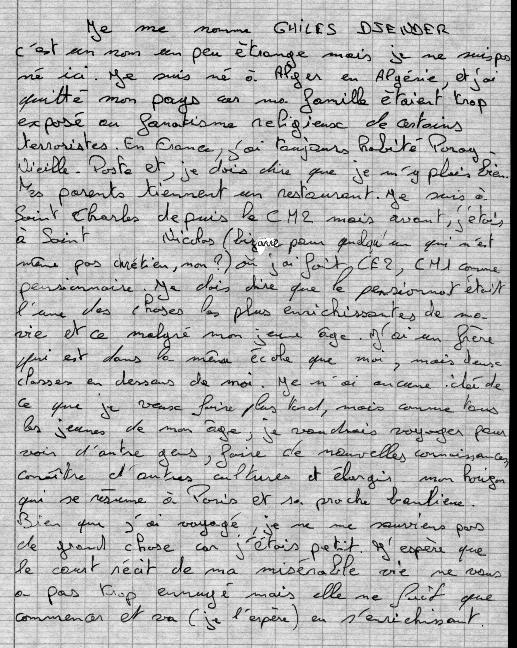 Je me nomme GHILES DJENDER
c'est un nom un peu étrange mais je ne suis pas
né ici. Je suis né à Alger en Algérie, et j'ai
quitté mon pays car ma famille étaient trop
exposé au fanatisme religieux de certains
terroristes. En France, j'ai toujours habité
Vieille. Poste et, je dois dire que je m'y plais bien.
Mes parents tiennent un restaurant. Je suis à
Saint Charles depuis le CM2 mais avant, j'étais
à Saint Nicolas (bizarre pour quelqu'un qui n'est
même pas chrétien, non?) où j'ai fait CE2, CM1 comme
pensionnaire. Je dois dire que le pensionnat était
l'une des choses les plus enrichissantes de ma
vie et ce malgré mon jeune âge. J'ai un frère
qui est dans la même école que moi, mais deux
classes en dessous de moi. Je n'ai aucune idée de
ce que je veux faire plus tard, mais comme tous
les jeunes de mon âge, je voudrais voyager pour
voir d'autre gens, faire de nouvelles connaissances,
connaître d'autres cultures et élargir mon horizon
qui se résume à Paris et sa proche banlieue.
Bien que j'ai voyagé, je ne me souviens pas
de grand chose car j'étais petit. J'espère que
le court récit de ma misérable vie ne vous
a pas trop ennuyé mais elle ne fait que
commencer et va (je l'espère) en s'enrichissant.